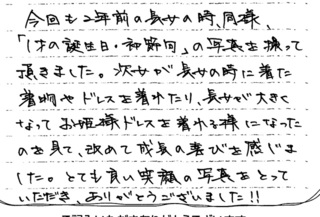 今回も二年前の長女の時、同様、
「1才の誕生日・初節句」の写真を撮って
頂きました。次女が長女の時に着た
着物やドレスを着れたり、長女が大きく
なってお姫様ドレスを着れる様になった
のを見て、改めて成長の喜びを感じま
した。とても良い笑顔の写真をとって
いただき、ありがとうございました!!